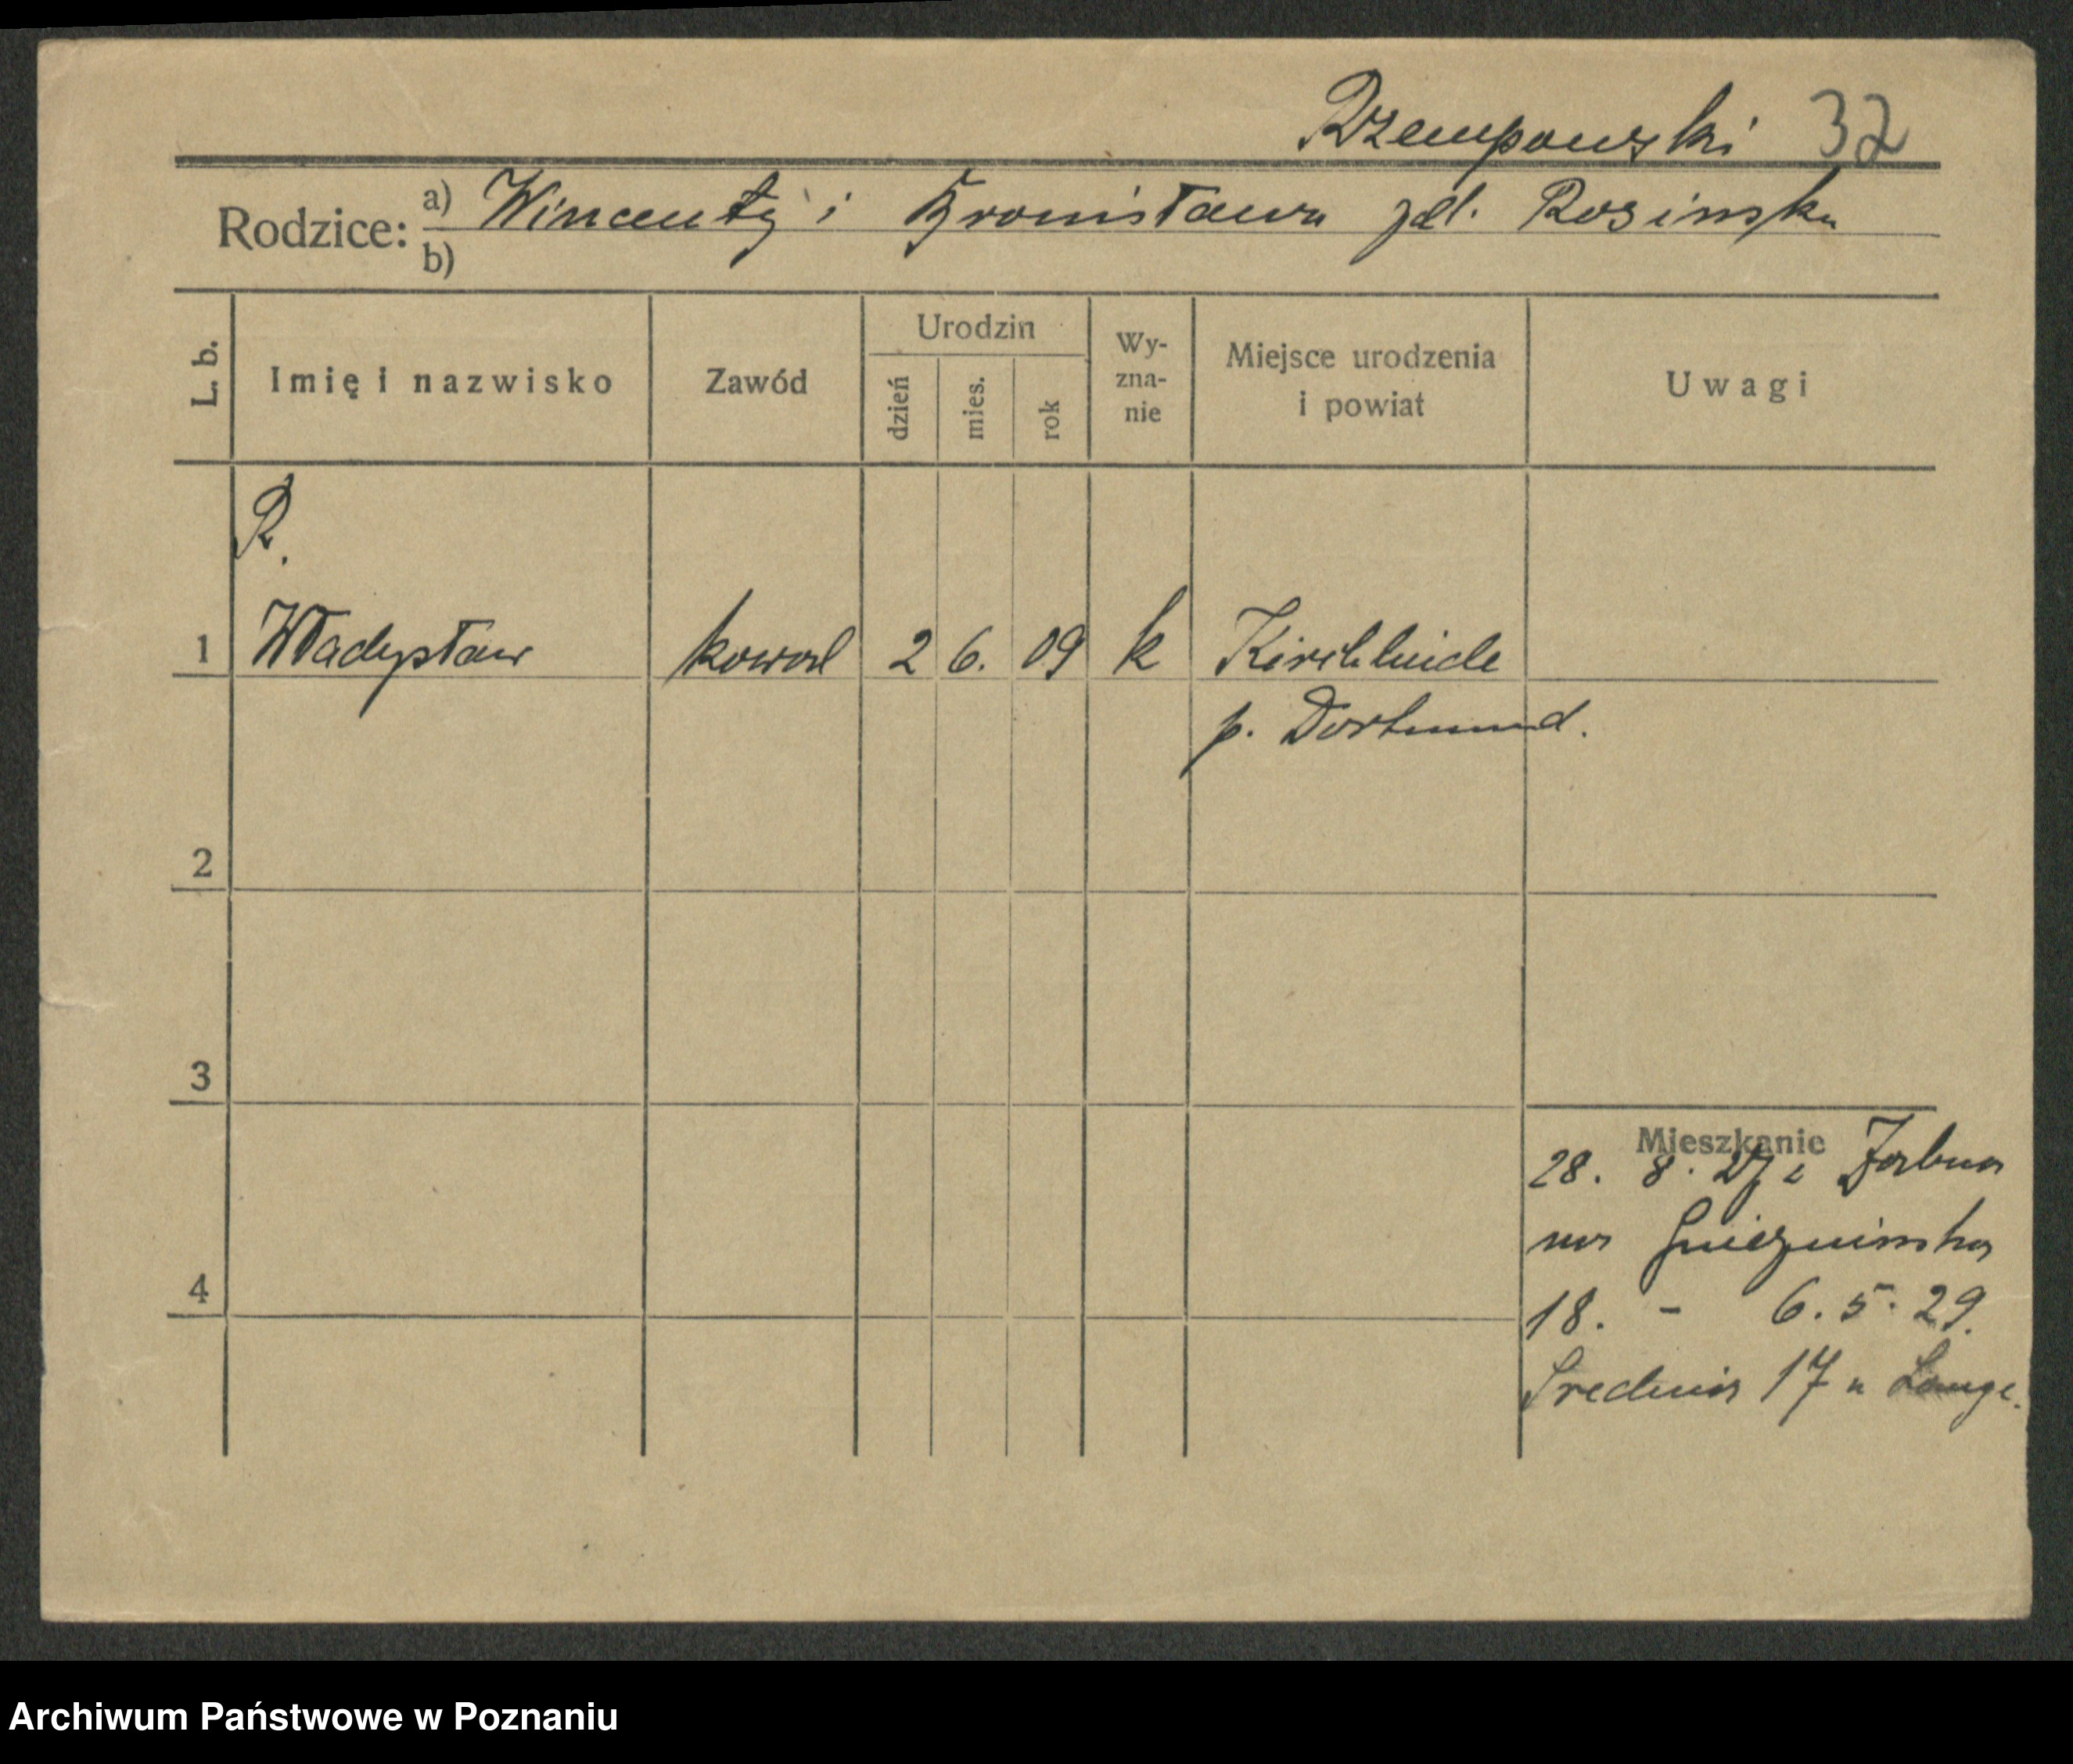 Rzempowski 32
Rodzice: a) Wincenty i Bronisława zdl. Rosinska
b)
L. b. Imię i nazwisko Zawód Urodzin dzień mies. rok Wy-zna-nie Miejsce urodzenia i powiat Uwagi
R.
1 Władysław kowal 2 6. 09 k Kirchlinde
p. Dortmund.
2
3
Mieszkanie
28. 8. 27 z
na Gniezninska
4
18. - 6. 5. 29.
Srednia 17 u Lange.
Archiwum Państwowe w Poznaniu